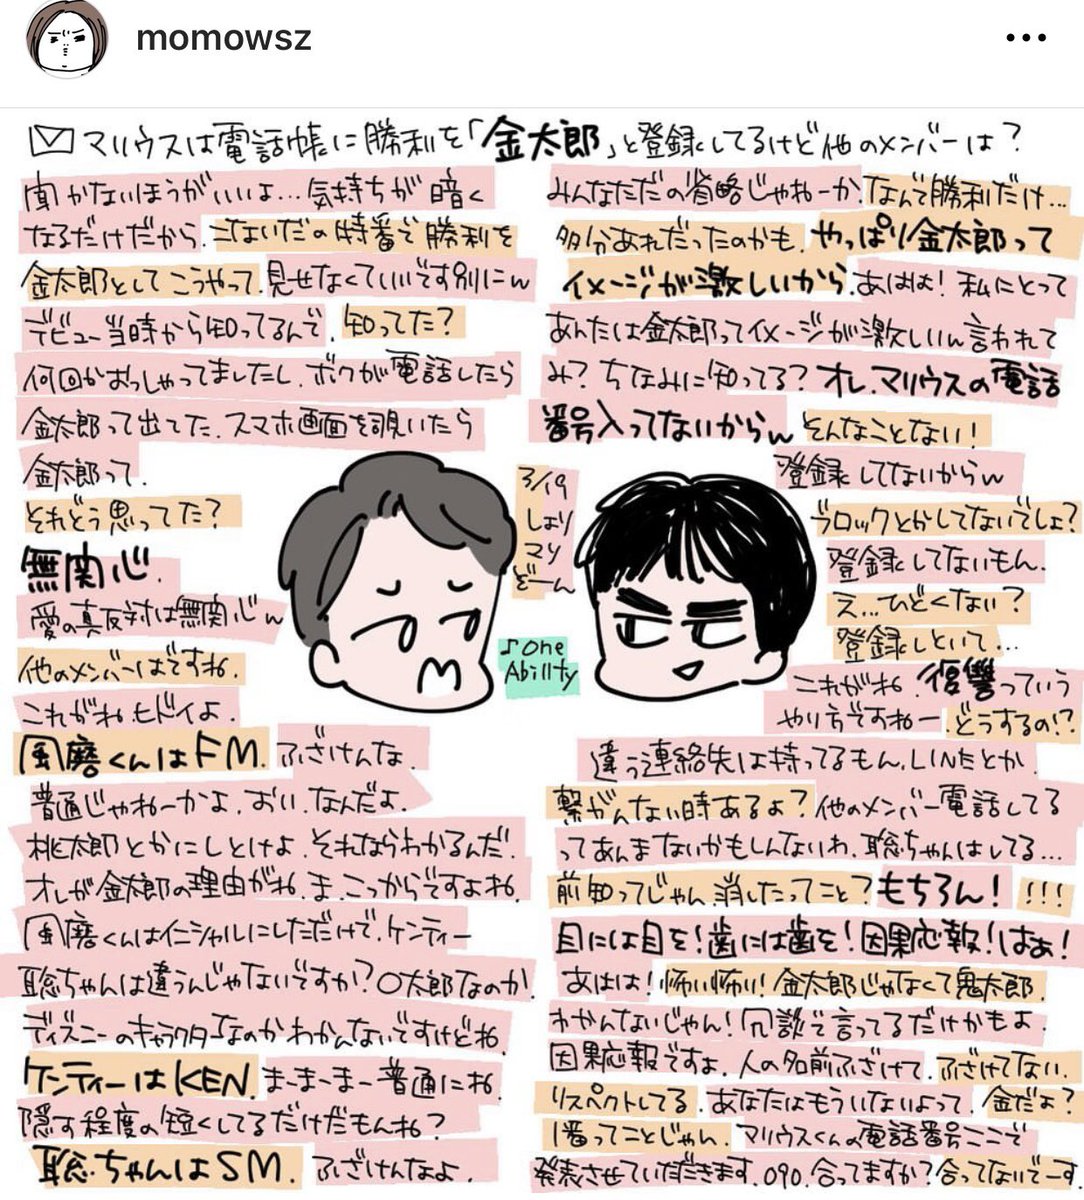 momowsz
マリウスは電話帳に勝利を「金太郎」と登録してるけど他のメンバーは?
聞かないほうがいいよ…気持ちが暗く
なるだけだから。こないだの特番で勝利を
金太郎としてこうやって。見せなくていいです別にw
デビュー当時から知ってるんで。知ってた?
何回かおっしゃってましたし、ボクが電話したら
金太郎って出てた。スマホ画面を覗いたら
金太郎って。
それどう思ってた?
無関心。
愛の真反対は無関心w
他のメンバーはですね。
これがねヒドイよ。
風磨くんはFM。ふざけんな。
普通じゃねーかよ。おい。なんだよ。
桃太郎とかにしとけよ。それならわかるんだ。
オレが金太郎の理由がね。ま、こっからですよね。
風磨くんはイニシャルにしただけで、ケンティー
聡ちゃんは違うんじゃないですか?〇太郎なのか。
ディズニーのキャラクターなのかわかんないですけどね。
ケンティーはKEN。まーまーまー普通にね
隠す程度の短くしてるだけだもんね?
聡ちゃんはSM。ふざけんなよ。
3/19
しょり
マリ
ぞーん
♪One
Ability
みんなただの省略じゃねーか。なんで勝利だけ…
多分あれだったのかも。やっぱり金太郎って
イメージが激しいから。あはは!私にとって
あんたは金太郎ってイメージが激しいw言われて
み?ちなみに知ってる?オレ、マリウスの電話
番号入ってないからw そんなことない!
登録してないからw
ブロックとかしてないでしょ?
登録してないもん。
え…ひどくない?
登録しといて…
これがね。復讐っていう
やり方ですねー どうするの!?
違う連絡先は持ってるもん。LINEとか。
繋がんない時あるよ?他のメンバー電話してる
ってあんまないかもしんないわ。聡ちゃんはしてる…
前知ってじゃん。消したってこと?もちろん!!!!
目には目を!歯には歯を!因果応報!はぁ!
あはは!怖い怖い!金太郎じゃなくて鬼太郎。
わかんないじゃん!冗談で言ってるだけかもよ。
因果応報ですよ。人の名前ふざけて。ふざけてない。
リスペクトしてる。あなたはもういないよって。金だよ?
1番ってことじゃん。マリウスくんの電話番号ここで
発表させていただきます。090。合ってますか?合ってないでーす。